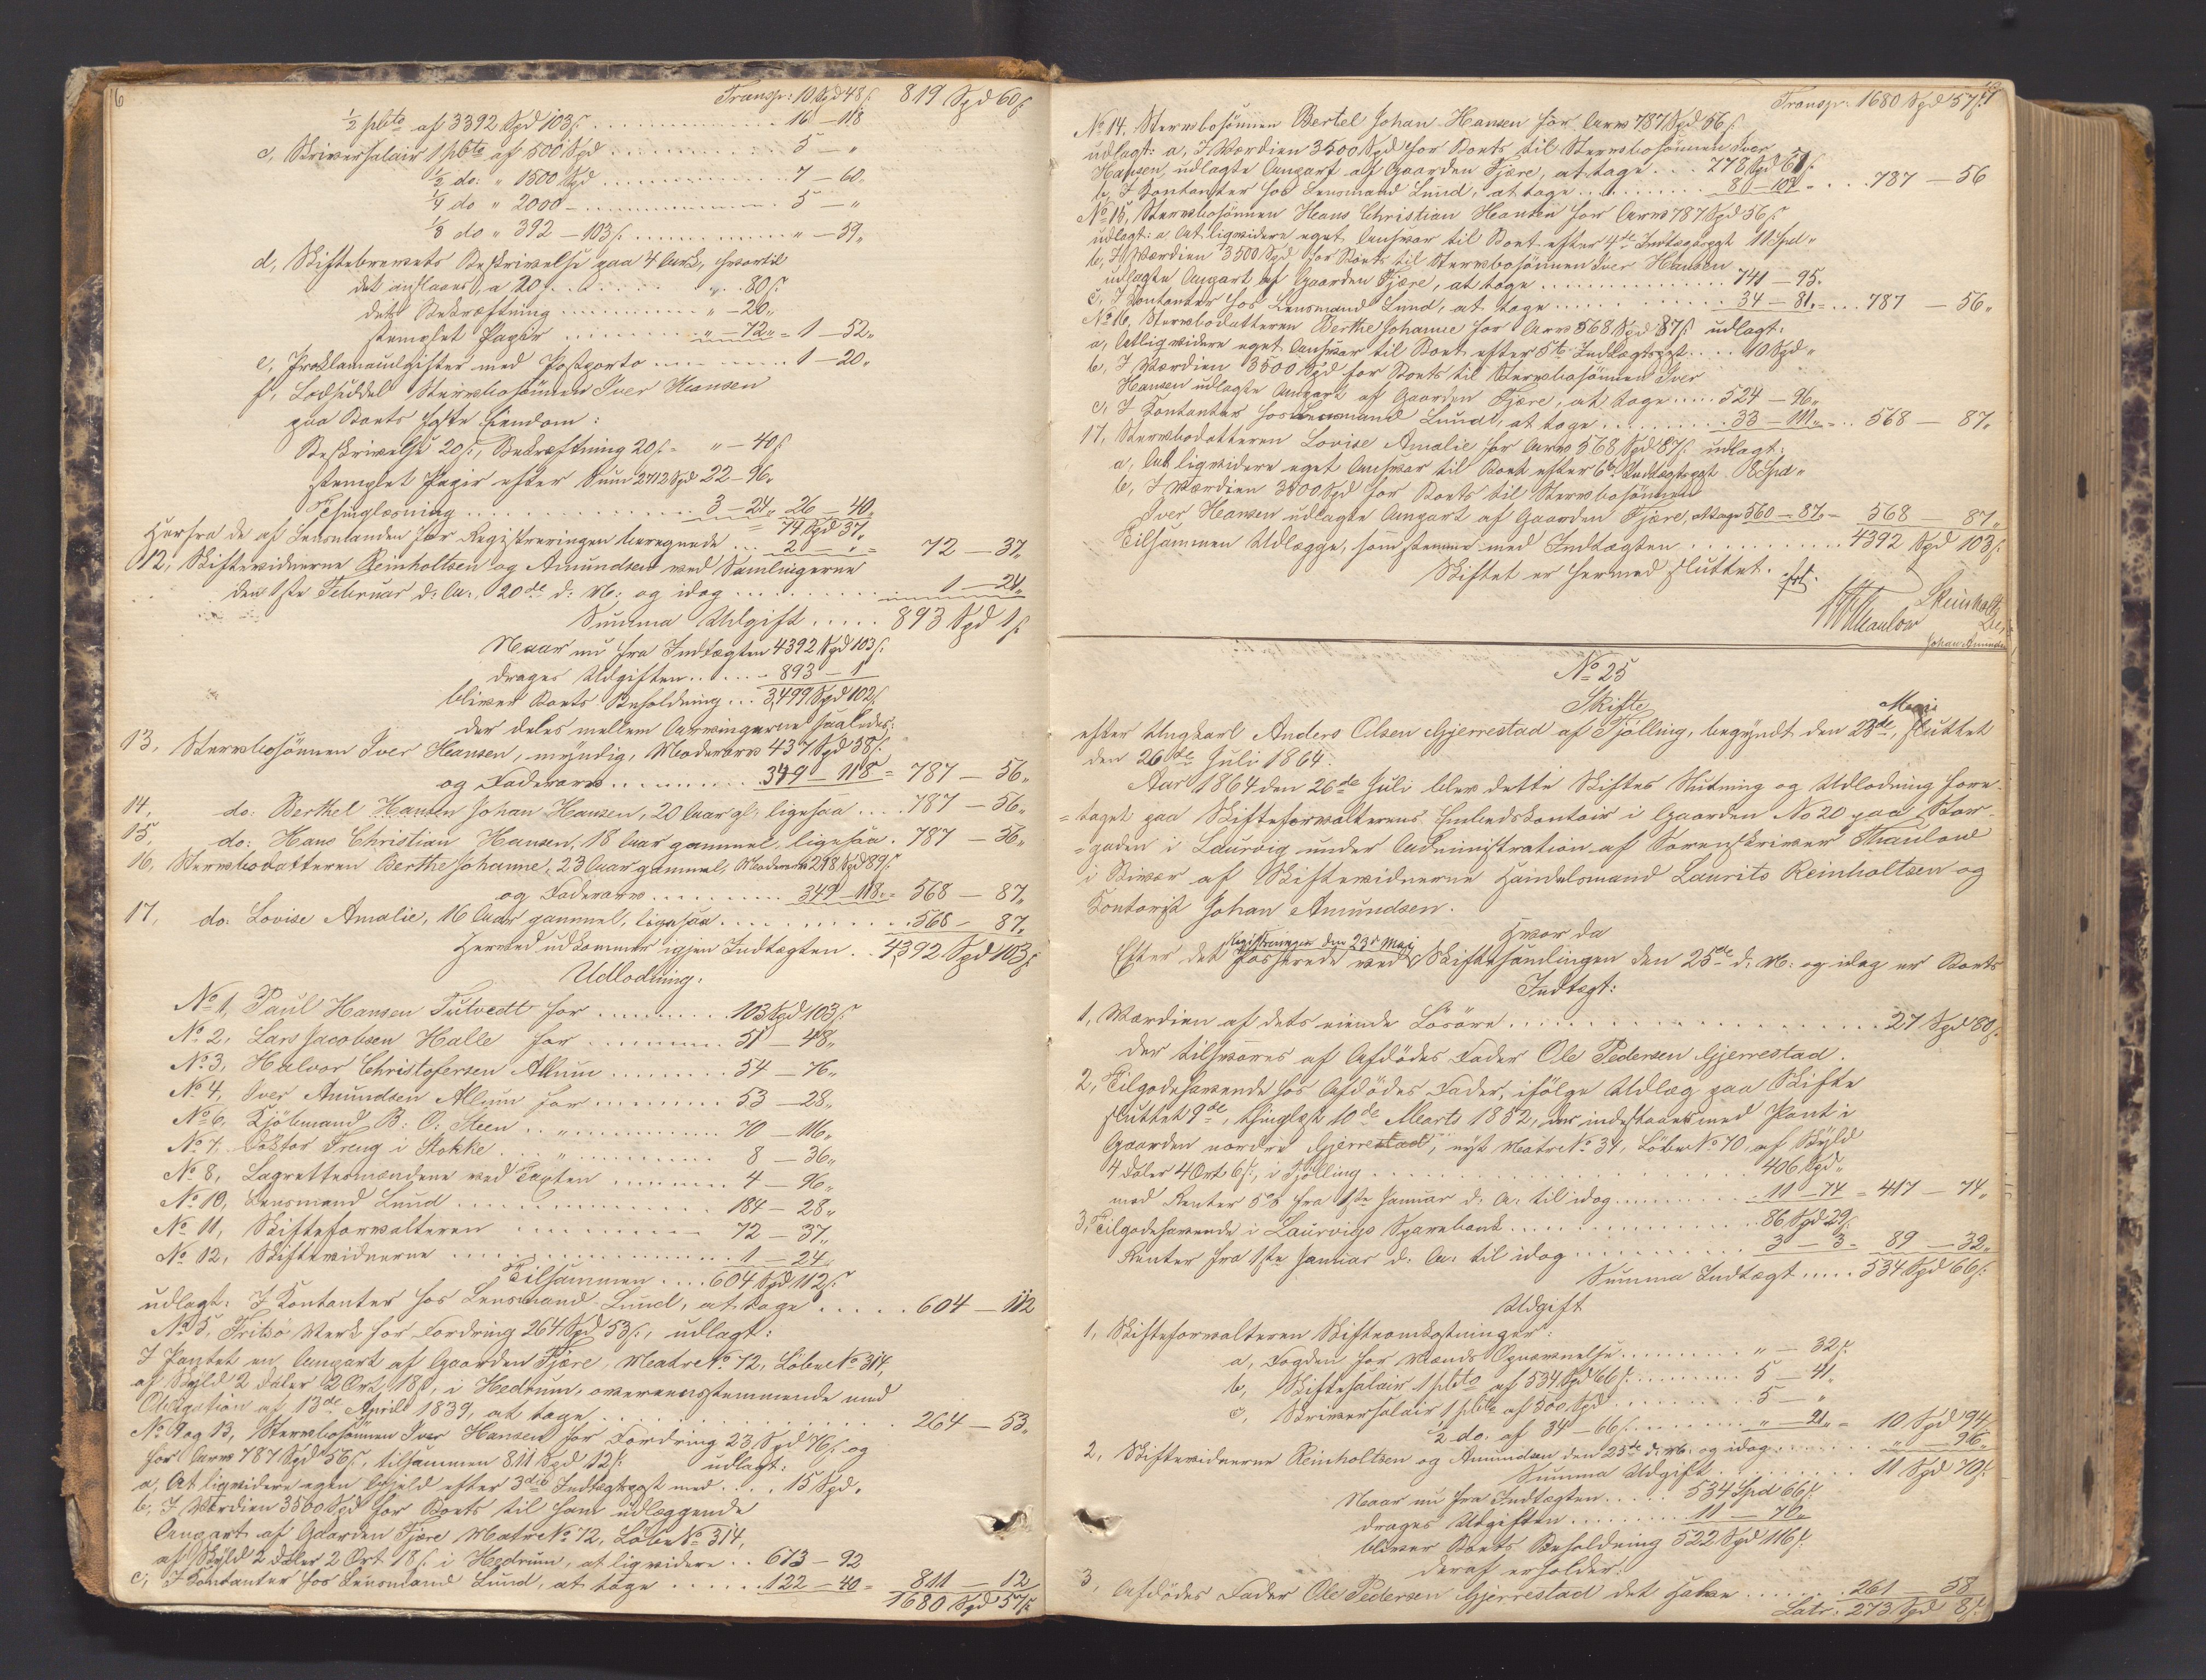 6
Transp: 10 Spd 48 s. 819 Spd 60 s.
½ pCto af 3392 Spd 103 s. 16 – 118
c, Skriversalair 1 pCto af 500 Spd 5 – "
½ do: " 1500 Spd 7 – 60.
¼ do " 2000 – 5 – "
⅛ do " 392 – 103 s. " – 59,,
d, Skiftebrevets Beskrivelse paa 4 Ark, hvortil
det anslaaes, a 20 s. " 80 s.
dets Bekræftning " – 20,,
stemplet Papir " – 72,, = 1 – 52,,
e, Proklamaudgifter med Postporto 1 – 20,,
f, Lodseddel Stervbosønnen Iver Hansen
paa Boets faste Eiendom:
Beskrivelse 20 s., Bekræftning 20 s. = " – 40 s.
stemplet Papir efter Sum 2712 Spd 22 – 96.
Thinglæsning 3 – 24,, 26 – 40,,
= 74 Spd 37,,
Herfra de af Lensmanden for Registreringen beregnede 2 – " = 72 – 37,,
12, Skiftevidnerne Reinholtsen og Amundsen ved Samlingerne
den 1ste Februar d: A:, 20de d: M: og idag 1 – 24,,
Summa Udgift 893 Spd 1 s.
Naar nu fra Indtægten 4392 Spd 103 s.
drages Udgiften 893 – 1
bliver Boets Beholdning 3,499 Spd 102 s.
der deles mellem Arvingerne saaledes:
13, Stervbosønnen Iver Hansen, myndig, Moderarv 437 Spd 58 s.
og Faderarv 349 – 118 = 787 – 56,,
14, do: Berthel Hansen Johan Hansen, 20 Aar gl, ligesaa 787 – 56,,
15, do: Hans Christian Hansen, 18 Aar gammel, ligesaa. 787 – 56,,
16, Stervbodatteren Berthe Johanne, 23 Aar gammel, Moderarv 218 Spd 89 s.
og Faderarv 349 – 118 = 568 – 87,,
17, do: Lovise Amalie, 16 Aar gammel, ligesaa 568 – 87,,
Hermed udkommer igjen Indtægten 4392 Spd 103 s.
Udlodning.
No 1, Paul Hansen Tutvedt for 103 Spd 103 s.
No 2, Lars Jacobsen Halle for 51 – 48,,
No 3, Halvor Christofersen Allum 54 – 76,,
No 4, Iver Amundsen Allum for 53 – 28,,
No 6, Kjøbmand B: O: Steen " 70 – 116,,
No 7, Doktor Freng i Stokke " 8 – 36,,
No 8, Lagrettesmændene ved Taxten 4 – 96,,
No 10, Lensmand Lund 184 – 28,,
No 11, Skifteforvalteren 72 – 37,,
No 12, Skiftevidnerne 1 – 24,,
Tilsammen 604 Spd 112 s.
udlagt: I Kontanter hos Lensmand Lund, at tage 604 – 112
No 5, Fritsø Værk for Fordring 264 Spd 53 s., udlagt:
I Pantet en Anpart af Gaarden Fjære, Matre No 72, Løbe No 314,
af Skyld 2 Daler 2 Ort 18 s., i Hedrum, overeensstemmende med
Obligation af 13de April 1839, at tage 264 – 53,,
No 9 og 13, Stervbosønnen Iver Hansen for Fordring 23 Spd 76 s. og
for Arv 787 Spd 56 s., tilsammen 811 Spd 12 s. udlagt:
a, At liqvidere egen Gjeld efter 3die Indtægtspost med 15 Spd.
b, I Værdien 3500 Spd for Boets til ham udlæggende
Anpart af Gaarden Fjære Matre No 72, Løbe No 314,
af Skyld 2 Daler 2 Ort 18 s. i Hedrum, at liqvidere 673 – 92
c, I Kontanter hos Lensmand Lund, at tage 122 – 40 = 811 – 12
1680 Spd 57 s.
Transp: 1680 Spd 57 s.
No 14, Stervbosønnen Bertel Johan Hansen for Arv 787 Spd 56 s.
udlagt: a, I Værdien 3500 Spd for Boets til Stervbosønnen Iver
Hansen udlagte Anpart af Gaarden Fjære, at tage 778 Spd
b, I Kontanter hos Lensmand Lund, at tage 787 – 56
No 15, Stervbosønnen Hans Christian Hansen for Arv 787 Spd 56 s.
udlagt: a, At liqvidere eget Ansvar til Boet efter 4de Indtægtspost 11 Spd "
b, I Værdien 3500 Spd for Boets til Stervbosønnen Iver Hansen
udlagte Anpart af Gaarden Fjære, at tage 741 – 95.
c, I Kontanter hos Lensmand Lund, at tage 34 – 81. = 787 – 56,,
No 16, Stervbodatteren Berthe Johanne for Arv 568 Spd 87 s. udlagt:
a, At liqvidere eget Ansvar til Boet efter 5te Indtægtspost 10 Spd "
b, I Værdien 3500 Spd for Boets til Stervbosønnen Iver
Hansen udlagte Anpart af Gaarden Fjære, at tage 524 – 96,,
c, I Kontanter hos Lensmand Lund, at tage 33 – 111,, = 568 – 87,,
17, Stervbodatteren Lovise Amalie for Arv 568 Spd 87 s. udlagt:
a, At liqvidere eget Ansvar til Boet efter 6te Indtægtspost 8 Spd "
b, I Værdien 3500 Spd for Boets til Stervbosønnen
Iver Hansen udlagte Anpart af Gaarden Fjære, at tage 560 – 87,, = 568 – 87,,
Tilsammen Udlægge, som stemme med Indtægten 4392 Spd 103 s.
Skiftet er hermed sluttet.
Thaulow
Johan Amundsen
No 25
Skifte
efter Ungkarl Anders Olsen Gjerrestad af Tjølling, begyndt den 23de Mai, sluttet
den 26de Juli 1864.
Aar 1864 den 26de Juli blev dette Skiftes Slutning og Udlodning fore-
=taget paa Skifteforvalterens Embedskontoir i Gaarden No 20 paa Stor-
=gaden i Laurvig under Administration af Sorenskriver Thaulow
i Bivær af Skiftevidnerne Handelsmand Laurits Reinholtsen og
Kontorist Johan Amundsen.
Hvor da
Efter det Passerede ved Registreringen den 23de Mai, Skiftesamlingen den 25de d: M: og idag er Boets
Indtægt:
1, Værdien af dets eiende Løsøre 27 Spd 80 s.
der tilsvares af Afdødes Fader Ole Pedersen Gjerrestad.
2, Tilgodehavende hos Afdødes Fader, ifølge Udlæg paa Skifte
sluttet 9de, thinglæst 10de Marts 1852, der indestaaer med Pant i
Gaarden nordre Gjerrestad, nyt Matre No 31, Løbe No 70, af Skyld
4 Daler 4 Ort 6 s., i Tjølling 406 Spd "
med Renter 5% fra 1ste Januar d. A. til idag 11 – 74 = 417 – 74,,
3, Tilgodehavende i Laurvigs Sparebank 86 Spd 29 s.
Renter fra 1ste Januar d: A: til idag 3 – 3 = 89 – 32,,
Summa Indtægt 534 Spd 66 s.
Udgift
1, Skifteforvalteren Skifteomkostninger:
a, Fogden for Mænds Opnævnelse " – 32 s.
b, Skiftesalair 1 pCto af 534 Spd 66 s. 5 – 41,,
c, Skriversalair 1 pCto af 500 Spd 5 – "
½ do. af 34 – 66 s. " – 21,, = 10 Spd 94
2, Skiftevidnerne Reinholtsen og Amundsen den 25de d: M: og idag " – 96,,
Summa Udgift 11 Spd 70 s.
Naar nu fra Indtægten 534 Spd 66 s.
drages Udgiften 11 – 70,,
bliver Boets Beholdning 522 Spd 116 s.
deraf erholder:
3, Afdødes Fader Ole Pedersen Gjerrestad det Halve 261 – 58
Latr: 273 Spd 8 s.